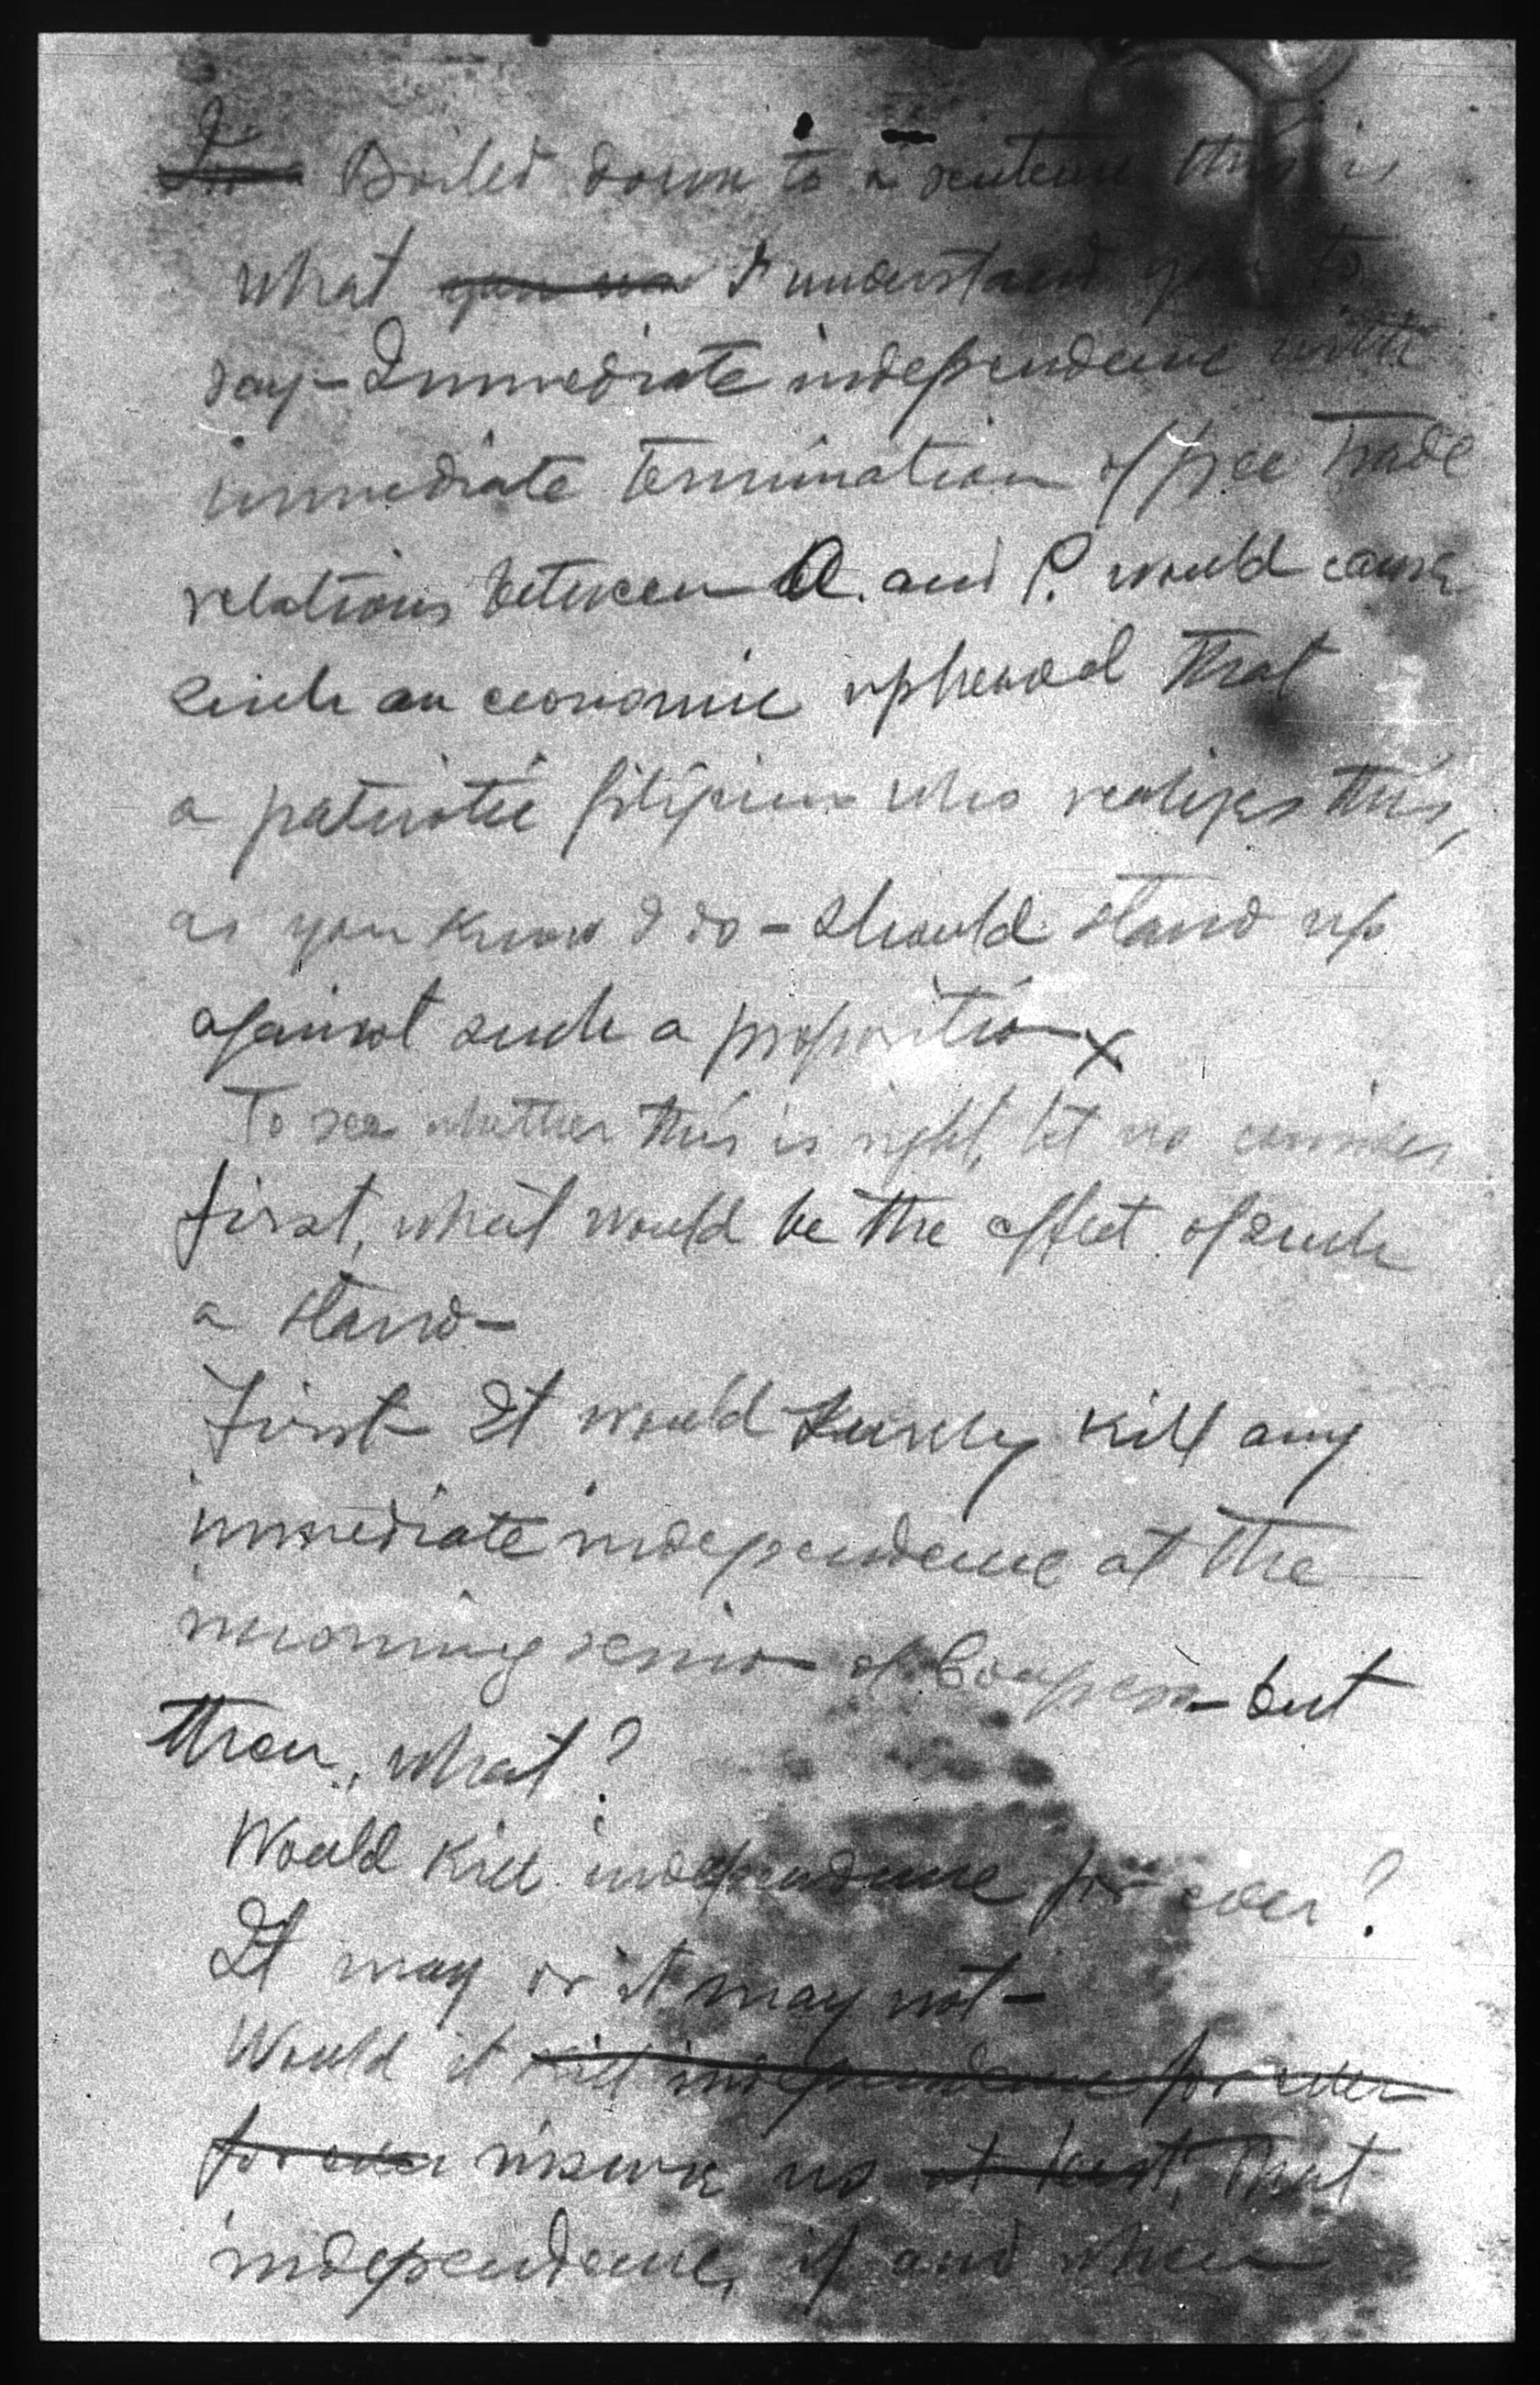 Boiled down to a sentence this is
what I understand you to
say – Immediate independence with
immediate termination of free trade
relations between A. and P. would cause
such an economic upheaval that
a patriotic filipino who realizes this,
as you know I do – should stand up
against such a proposition x
To see whether this is right, let us consider
first, what would be the effect of such
a stand –
First – It would surely kill any
immediate independence at the
session of Congress – but
then, what?
Would kill independence for ever?
It may or it may not –
Would it kill independence for ever
for ever insure us at least, that
independence, if and when